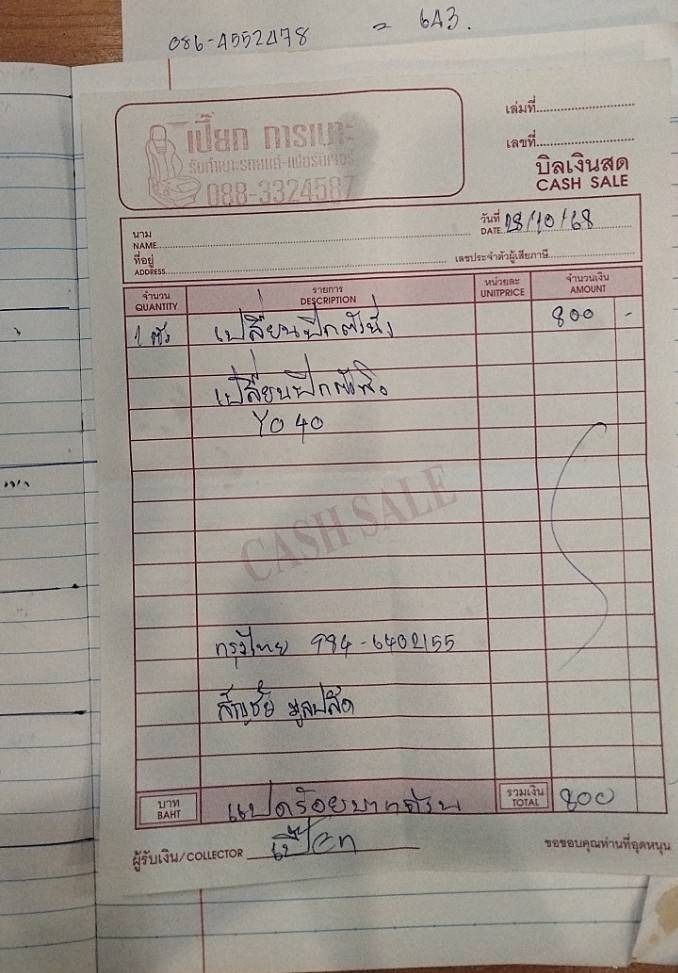 086-4552478 = 643.
เปี๊ยก การเบาะ
รับทำเบาะรถยนต์-เฟอร์นิเจอร์
088-3324587
เล่มที่
เลขที่
บิลเงินสด
CASH SALE
วันที่
DATE 28/10/68
นาม
NAME
ที่อยู่
ADDRESS
เลขประจำตัวผู้เสียภาษี
จำนวน รายการ หน่วยละ จำนวนเงิน
QUANTITY DESCRIPTION UNITPRICE AMOUNT
1 ตัว เปลี่ยนปีกตัวนั่ง 800 -
เปลี่ยนปีกตัวพิง
YO 40
CASH SALE
กรุงไทย 984-6402155
สัญชัย มูลปลัด
บาท แปดร้อยบาทถ้วน รวมเงิน 800
BAHT TOTAL
ผู้รับเงิน/COLLECTOR เปี๊ยก
ขอขอบคุณท่านที่อุดหนุน